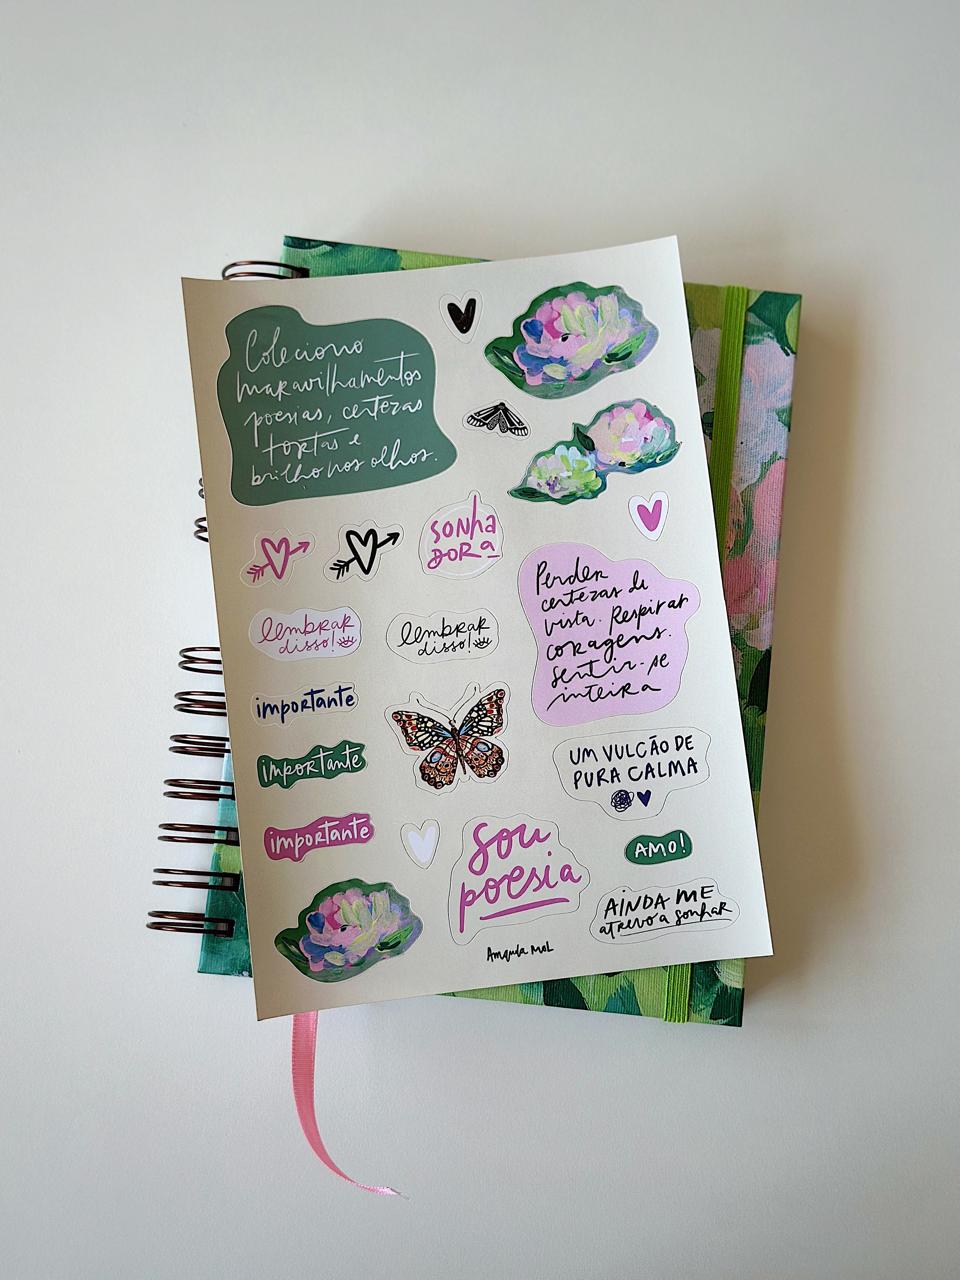 Coleciono
maravilhamentos
poesias, certezas
tortas e
brilho nos olhos.
sonha
DORA
lembrar
disso!
lembrar
disso!
Perder
certezas de
vista. Respirar
coragens.
Sentir-se
inteira
importante
importante
importante
UM VULCÃO DE
PURA CALMA
Sou
poesia
AMO!
AINDA ME
atrevo a sonhar
Amanda Mol